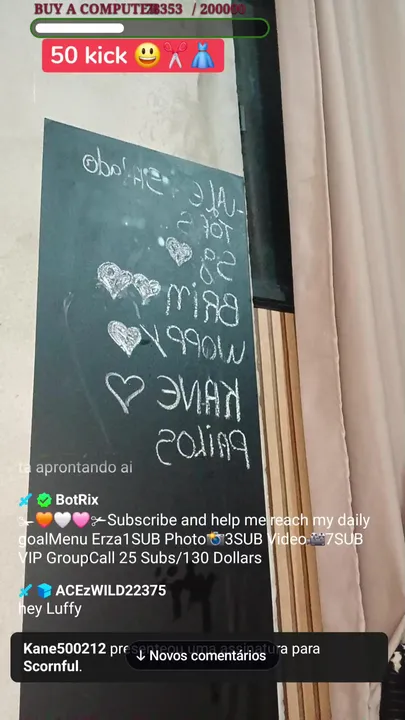 BUY A COMPUTER 78353 / 200000
50 kick 😃✂️👗
VALE
SG
BRIM
WOPPY
KANE
PAILOS
ta aprontando ai
BotRix
✂🧡🤍🩷✂Subscribe and help me reach my daily
goalMenu Erza1SUB Photo📸3SUB Video🎬7SUB
VIP GroupCall 25 Subs/130 Dollars
ACEzWILD22375
hey Luffy
Kane500212 presenteou uma assinatura para
Scornful.
↓ Novos comentários